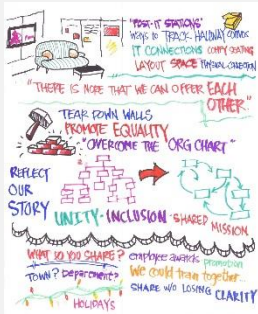 "POST-IT STATIONS"
WAYS to TRACK HALLWAY CONVOS
IT CONNECTIONS COMFY SEATING
LAYOUT SPACE PHYSICAL CONNECTION
"THERE IS HOPE THAT WE CAN OFFER EACH
OTHER"
TEAR DOWN WALLS
PROMOTE EQUALITY
"OVERCOME THE "ORG CHART"
REFLECT
OUR
STORY
UNITY · INCLUSION · SHARED
MISSION
WHAT DO YOU SHARE? employee awards promotion
TOWN? Department? We could train together...
SHARE W/O LOSING CLARITY
HOLIDAYS